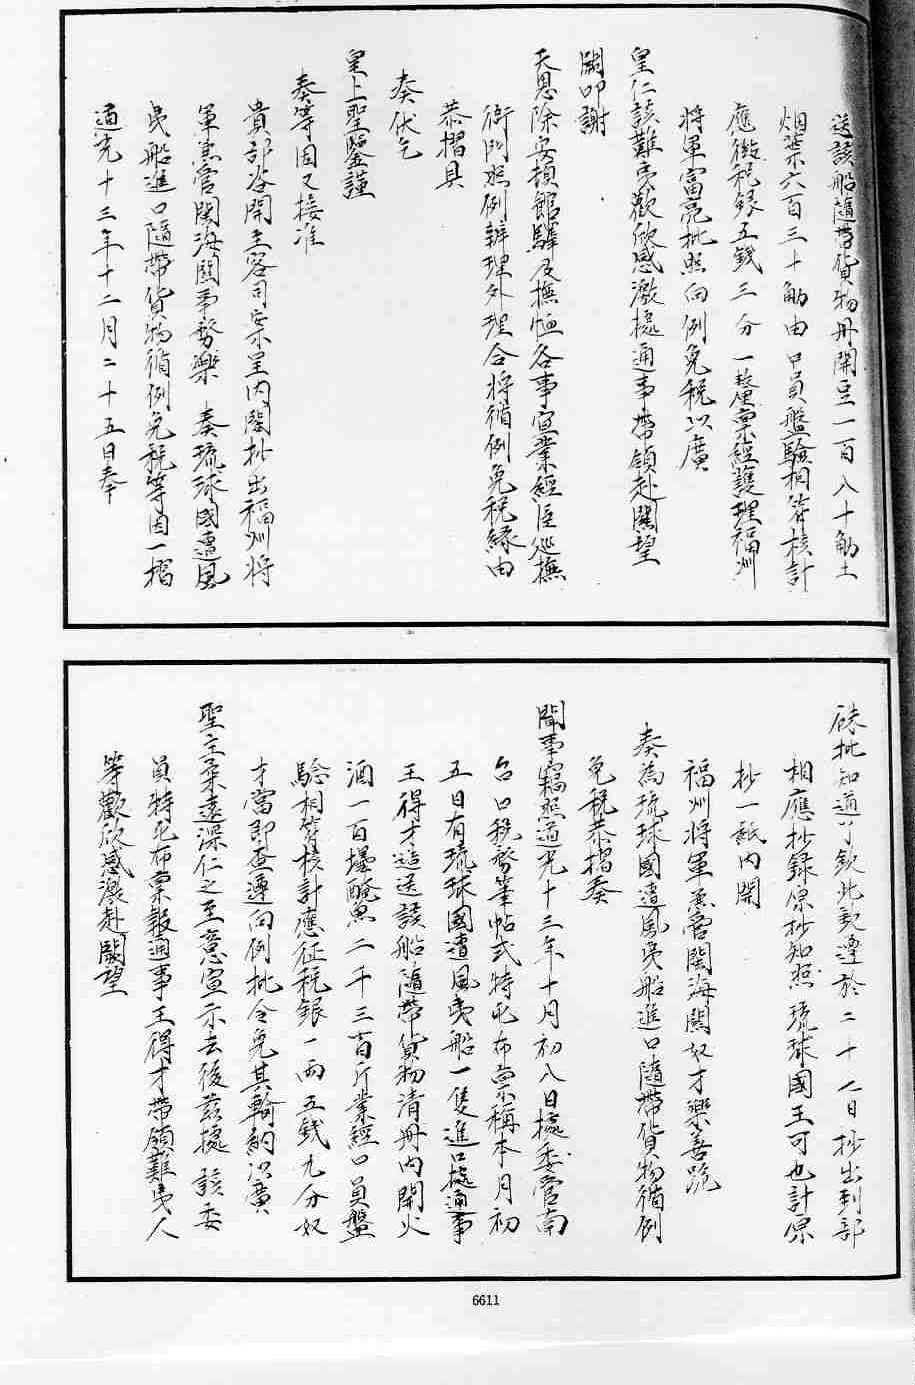 送該船隨帶貨物冊開豆一百八十觔土
烟葉六百三十觔由口員盤驗相符核計
應徵稅銀五錢三分一釐稟經護理福州
將軍富亮批照向例免稅以廣
皇仁該難夷歡欣感激據通事帶領赴關望
闕叩謝
天恩除安頓館驛及撫恤各事宜業經臣巡撫
衙門照例辦理外理合將循例免稅緣由
恭摺具
奏伏乞
皇上聖鑒謹
奏等因又接准
貴部咨開主客司案呈內閣抄出福州將
軍兼管閩海關事務樂 奏琉球國遭風
夷船進口隨帶貨物循例免稅等因一摺
道光十三年十二月二十五日奉
硃批知道了欽此欽遵於二十八日抄出到部
相應抄錄原抄知照琉球國王可也計原
抄一紙內開
福州將軍兼管閩海關奴才樂善跪
奏為琉球國遭風夷船進口隨帶貨物循例
免稅恭摺奏
聞事竊照道光十三年十月初八日據委管南
台口稅務筆帖式特屯布稟稱本月初
五日有琉球國遭風夷船一隻進口據通事
王得才造送該船隨帶貨物清冊內開火
酒一百壜醃魚二千三百斤業經口員盤
驗相符核計應征稅銀一兩五錢九分奴
才當即查遵向例批令免其輸納以廣
聖主柔遠深仁之至意宣示去後茲據該委
員特屯布稟報通事王得才帶領難夷人
等歡欣感激赴關望
6611